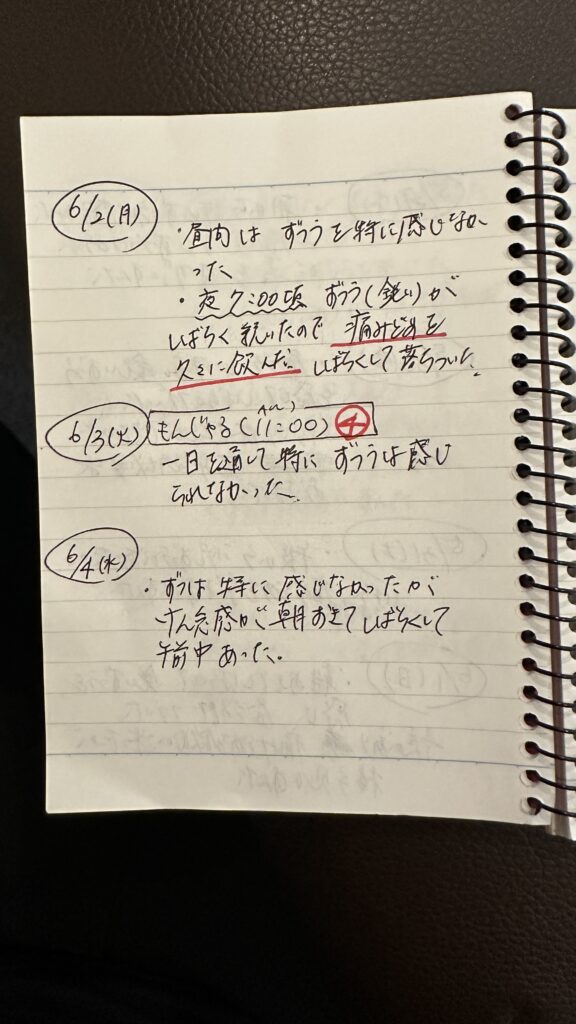 6/2(月)
・昼間は ずつうを特に感じなか
った
・夜 7:00頃 ずつう(鋭い)が
しばらく続いたので 痛みどめを
久々に飲んだ。しばらくして落ちついた。
6/3(火) もんじゃる(11:00) ④
一日を通して特に ずつうは感じ
られなかった。
6/4(水)
・ずつは 特に感じなかったが
けん怠感が 朝おきてしばらくして
午前中あった。